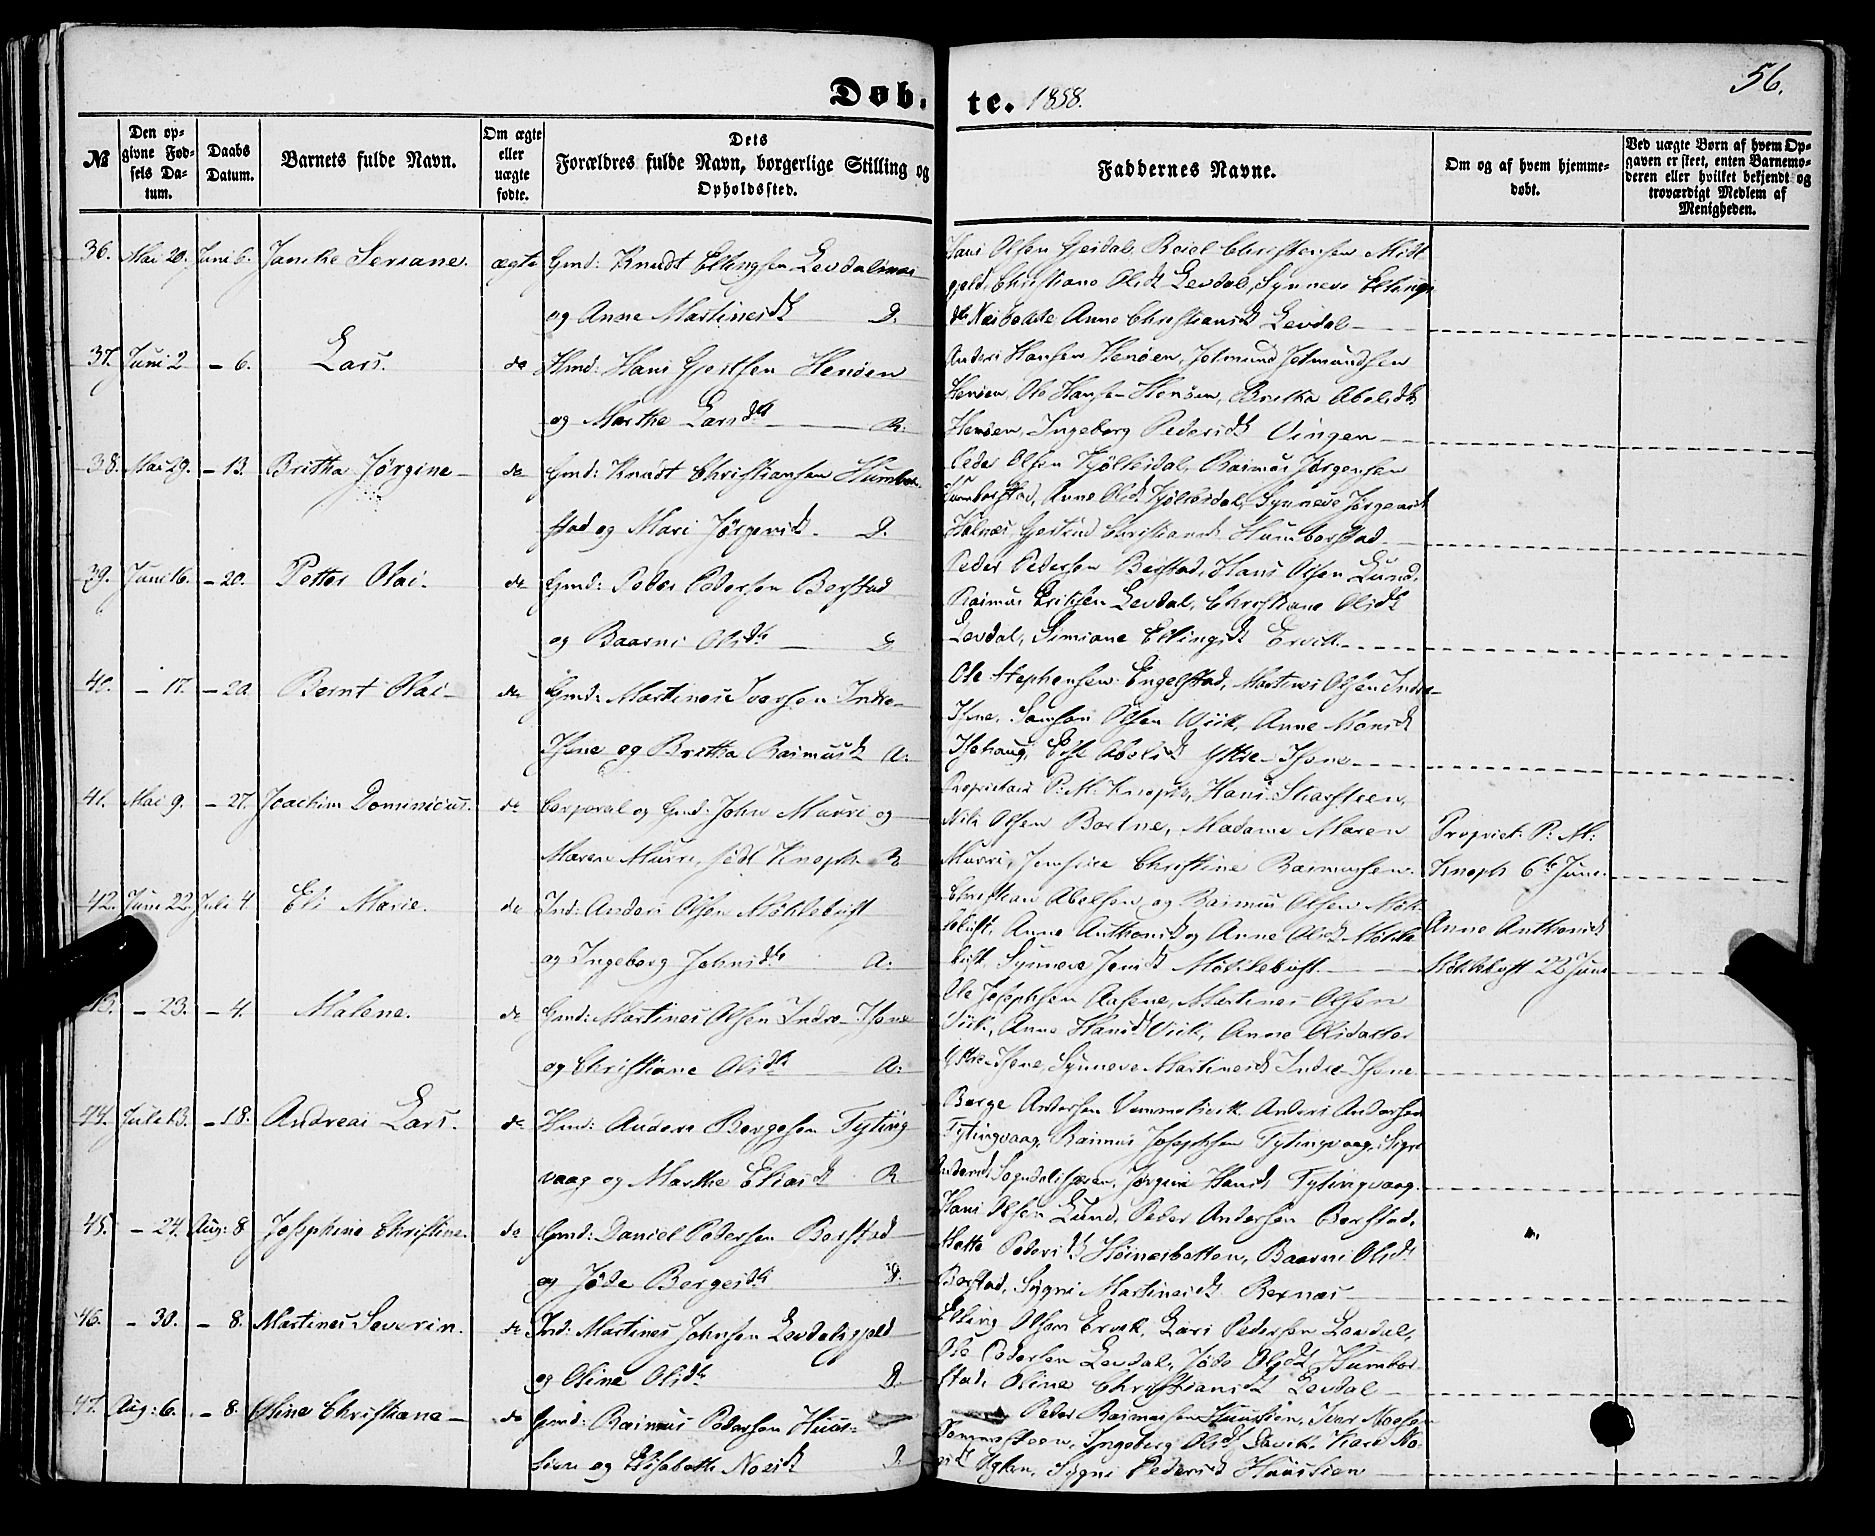 56.
Døb- te. 1858.
№
Den opgivne Fødsels Datum.
Daabs Datum.
Barnets fulde Navn.
Om ægte eller uægte fødte.
Dets Forældres fulde Navn, borgerlige Stilling og Opholdssted.
Faddernes Navne.
Om og af hvem hjemmedøbt.
Ved uægte Børn af hvem Opgaven er skeet, enten Barnemoderen eller hvilket bekjendt og troværdigt Medlem af Menigheden.
36. Mai 20. Juni 6. Jansike Seriane. ægte Gmd: Knudt Ellingsen Levdalsnæs
og Anne Martinesdtr D.
Hans Olsen Gjesdal, Reiel Christensen Midt
gjeld, Christiane Olsdtr Levdal, Synneve Ellings
dtr Anne Christiansdtr Levdal
37. Juni 2 - 6. Lars. do Hmd: Hans Gjertsen Henøen
og Marthe Larsdtr R.
Anders Hansen Henøen, Jetmund Jetmundsen
Henøen, Ole Hansen Henøen, Britha Abelsdtr
Henøen, Ingeborg Pedersdtr Vingen
38. Mai 29. - 13. Britha Jørgine do Gmd: Knudt Christiansen Humbor-
stad og Mari Jørgensdtr. D.
Peder Olsen Kjølesdal, Rasmus Jørgensen
Humborstad, Anne Olsdtr Kjølesdal, Synneve Jørgensdtr
Gjertrud Christiansdtr Humborstad
39. Juni 16. - 20. Petter Olai. do Gmd: Peder Pedersen Berstad
og Baarni Olsdtr D
Peder Pedersen Berstad, Hans Olsen Lund,
Rasmus Eriksen Levdal, Christiane Olsdtr
Levdal, Simiane Ellingsdtr Ervik
40. - 17. - 20 Bernt Olai do Gmd: Martinus Iversen Indre-
Hsne og Britha Rasmusdtr A:
Ole Stephensen Engelstad, Martines Olsen Indre
Samson Olsen Viik, Anne Monsdtr
Abelsdtr Ytre
41. Mai 9. - 27. Joachim Dominicus. do Corporal og Gmd: John Murri og
Maren Murri, født Knoph R
Proprietair P: M: Knoph, Hans
Nils Olsen Bortne, Madame Maren
Murri, Jomfrue Christine Rasmussen.
Propriet: P: M:
Knoph 6te Juni.
42. Juni 22. Juli 4. Eli Marie. do Ind: Anders Olsen Möklebust
og Ingeborg Johnsdtr A:
Christian Abelsen og Rasmus Olsen Mök-
lebust, Anne Anthonisdtr og Anne Olsdtr Mökle
bust, Synneve Jonsdtr Möklebust.
Anne Anthonisdtr
Möklebust 22 Juni
43. - 23. - 4. Malene. do Gmd: Martines Olsen Indre-
og Christiane Olsdtr A:
Ole Josephsen Aasene, Martines Olsen
Viik, Anne Hansdtr Viik, Anne Olsdatter
Synneve Martinesdtr Indre
44. Juli 13. - 18. Andreas Lars. do Hmd: Anders Børgesen Fyting
vaag og Marthe Eliasdtr R
Børge Andersen Vemmelsvik, Anders Andersen
Fytingvaag, Rasmus Josephsen Fytingvaag,
Jørgine Hansdtr Fytingvaag
45. - 24. Aug: 8 Josephine Christine. do Gmd: Daniel Pedersen Berstad
og Jøde Børgesdtr D.
Hans Olsen Lund, Peder Andersen Berstad,
Mette Pedersdtr Høinesbotten, Baarni Olsdtr
Berstad, Sygni Martinesdtr Rexnæs
46. - 30. - 8. Martines Severin. do Ind: Martines Johnsen Levdalsgjeld
og Oline Olsdtr D.
Elling Olsen Ervik, Lars Pedersen Levdal,
Ole Pedersen Levdal, Jøde Olsdtr Humbor-
stad, Oline Christiansdtr Levdal
47. Aug: 6. - 8. Oline Christiane do Gmd: Rasmus Pedersen Huus-
og Elisabeth Nilsdtr D
Peder Rasmussen Iver
Ingeborg Olsdtr Davik, Kari
Sygni Pedersdtr